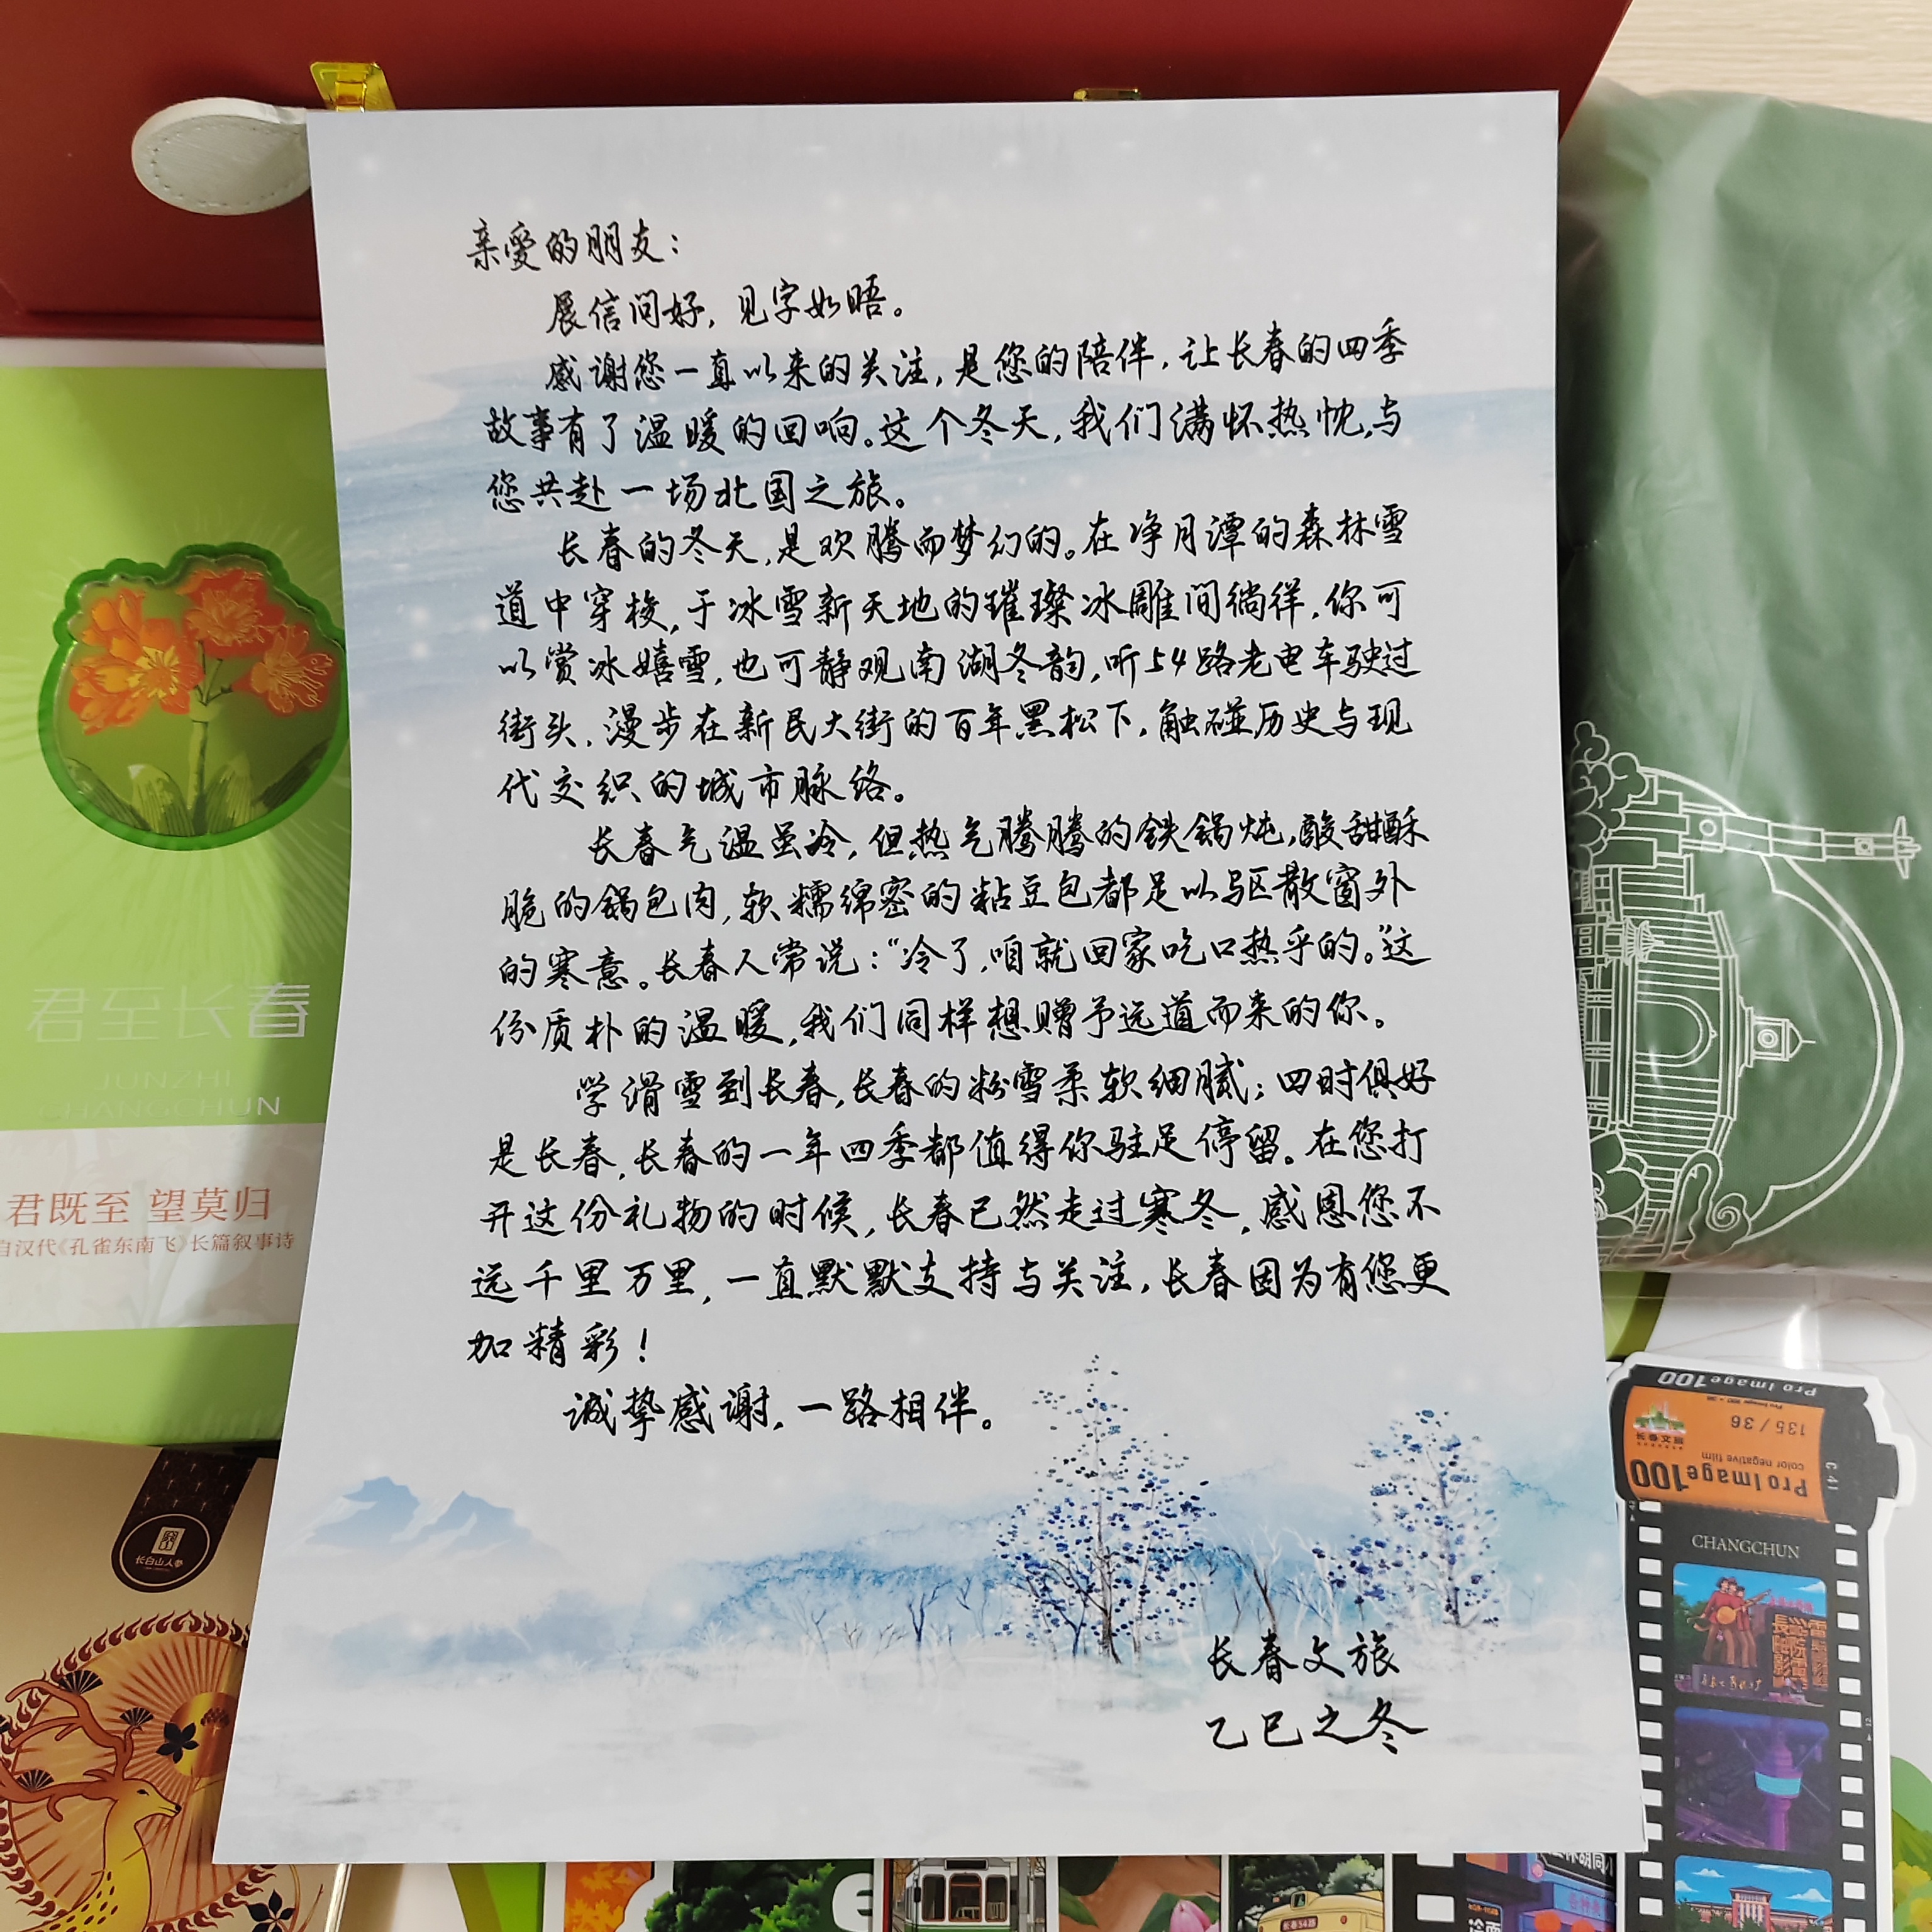 亲爱的朋友：
展信问好，见字如晤。
感谢您一直以来的关注，是您的陪伴，让长春的四季
故事有了温暖的回响。这个冬天，我们满怀热忱，与
您共赴一场北国之旅。
长春的冬天，是欢腾而梦幻的。在净月潭的森林雪
道中穿梭，于冰雪新天地的璀璨冰雕间徜徉，你可
以赏冰嬉雪，也可静观南湖冬韵，听54路老电车驶过
街头，漫步在新民大街的百年黑松下，触碰历史与现
代交织的城市脉络。
长春气温虽冷，但热气腾腾的铁锅炖，酸甜酥
脆的锅包肉，软糯绵密的粘豆包都足以驱散窗外
的寒意。长春人常说：“冷了，咱就回家吃口热乎的。”这
份质朴的温暖，我们同样想赠予远道而来的你。
学滑雪到长春，长春的粉雪柔软细腻；四时俱好
是长春，长春的一年四季都值得你驻足停留。在您打
开这份礼物的时候，长春已然走过寒冬，感恩您不
远千里万里，一直默默支持与关注，长春因为有您更
加精彩！
诚挚感谢，一路相伴。
长春文旅
乙巳之冬
君至长春
JUNZHI
CHANGCHUN
君既至 望莫归
自汉代《孔雀东南飞》长篇叙事诗
长白山人参
Pro Image 100
135/36
长春文旅
color negative film
Pro Image 100
CHANGCHUN
长春54路